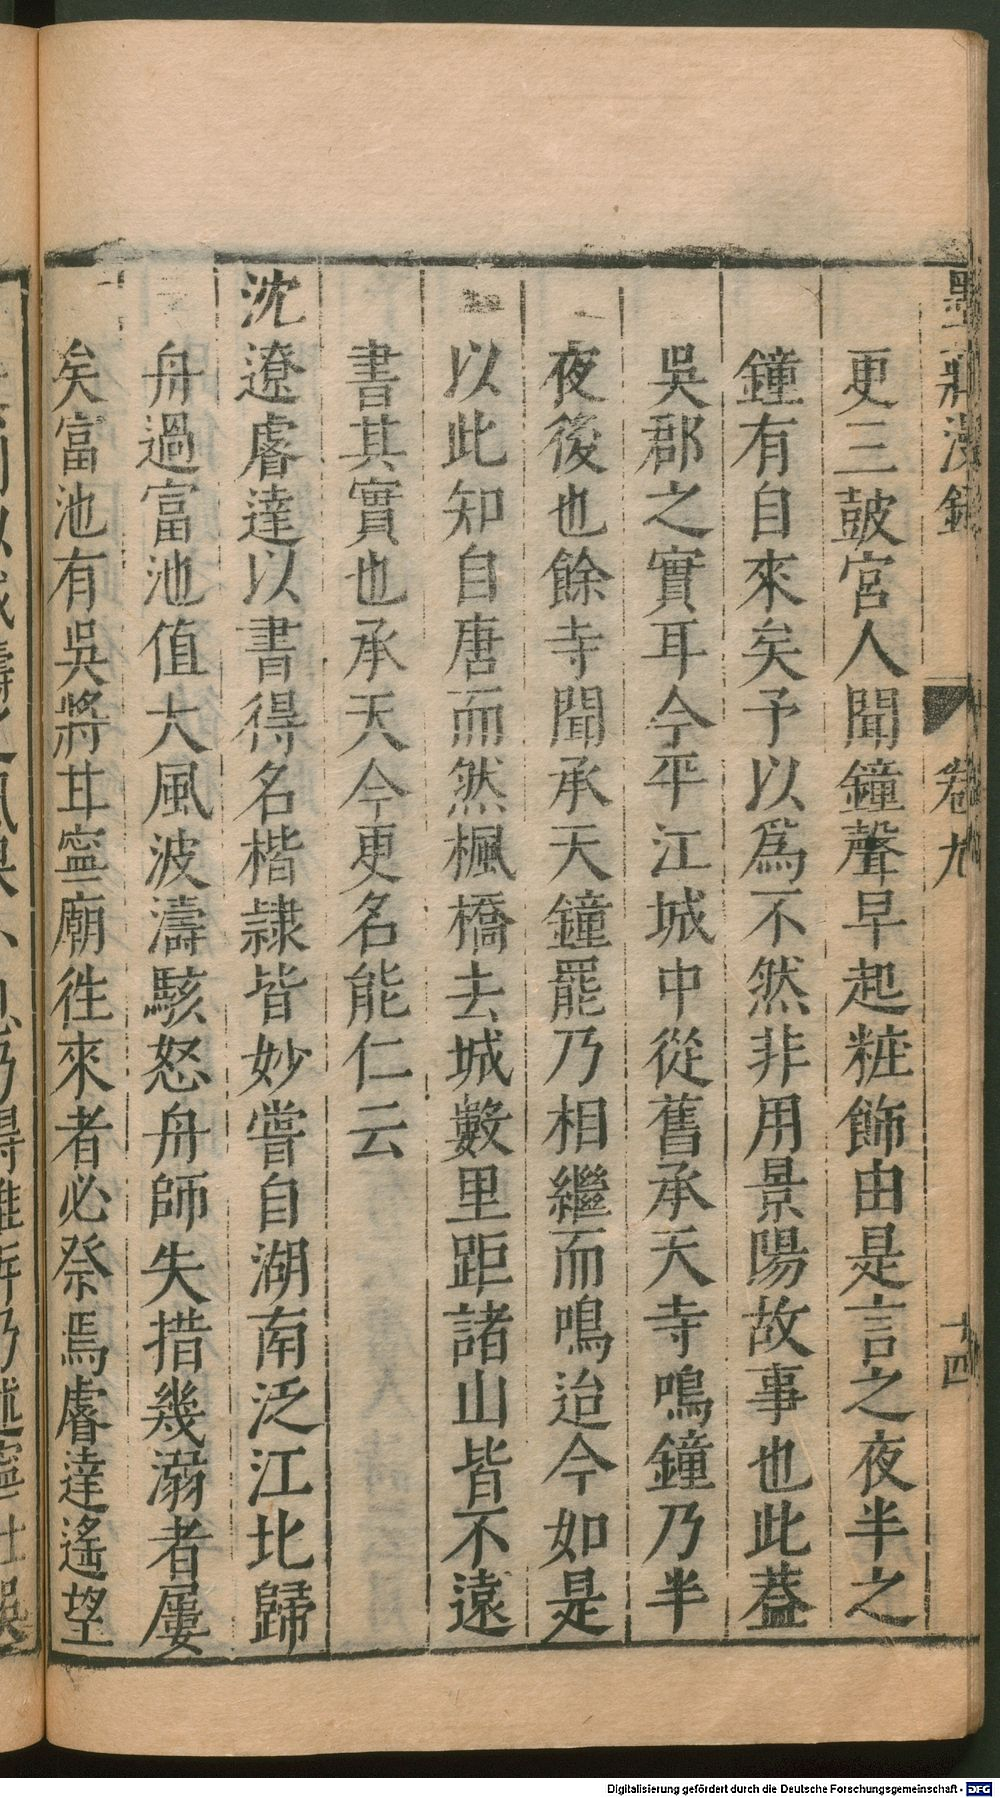 墨莊漫錄 卷九 十四
更三鼓宮人聞鐘聲早起粧飾由是言之夜半之
鐘有自來矣予以爲不然非用景陽故事也此葢
吳郡之實耳今平江城中從舊承天寺鳴鐘乃半
夜後也餘寺聞承天鐘罷乃相繼而鳴迨今如是
以此知自唐而然楓橋去城數里距諸山皆不遠
書其實也承天今更名能仁云
沈遼睿達以書得名楷隷皆妙嘗自湖南泛江北歸
舟過富池值大風波濤駭怒舟師失措幾溺者屢
矣富池有吳將甘寧廟徃來者必祭焉睿達遙望
Digitalisierung gefördert durch die Deutsche Forschungsgemeinschaft - DFG